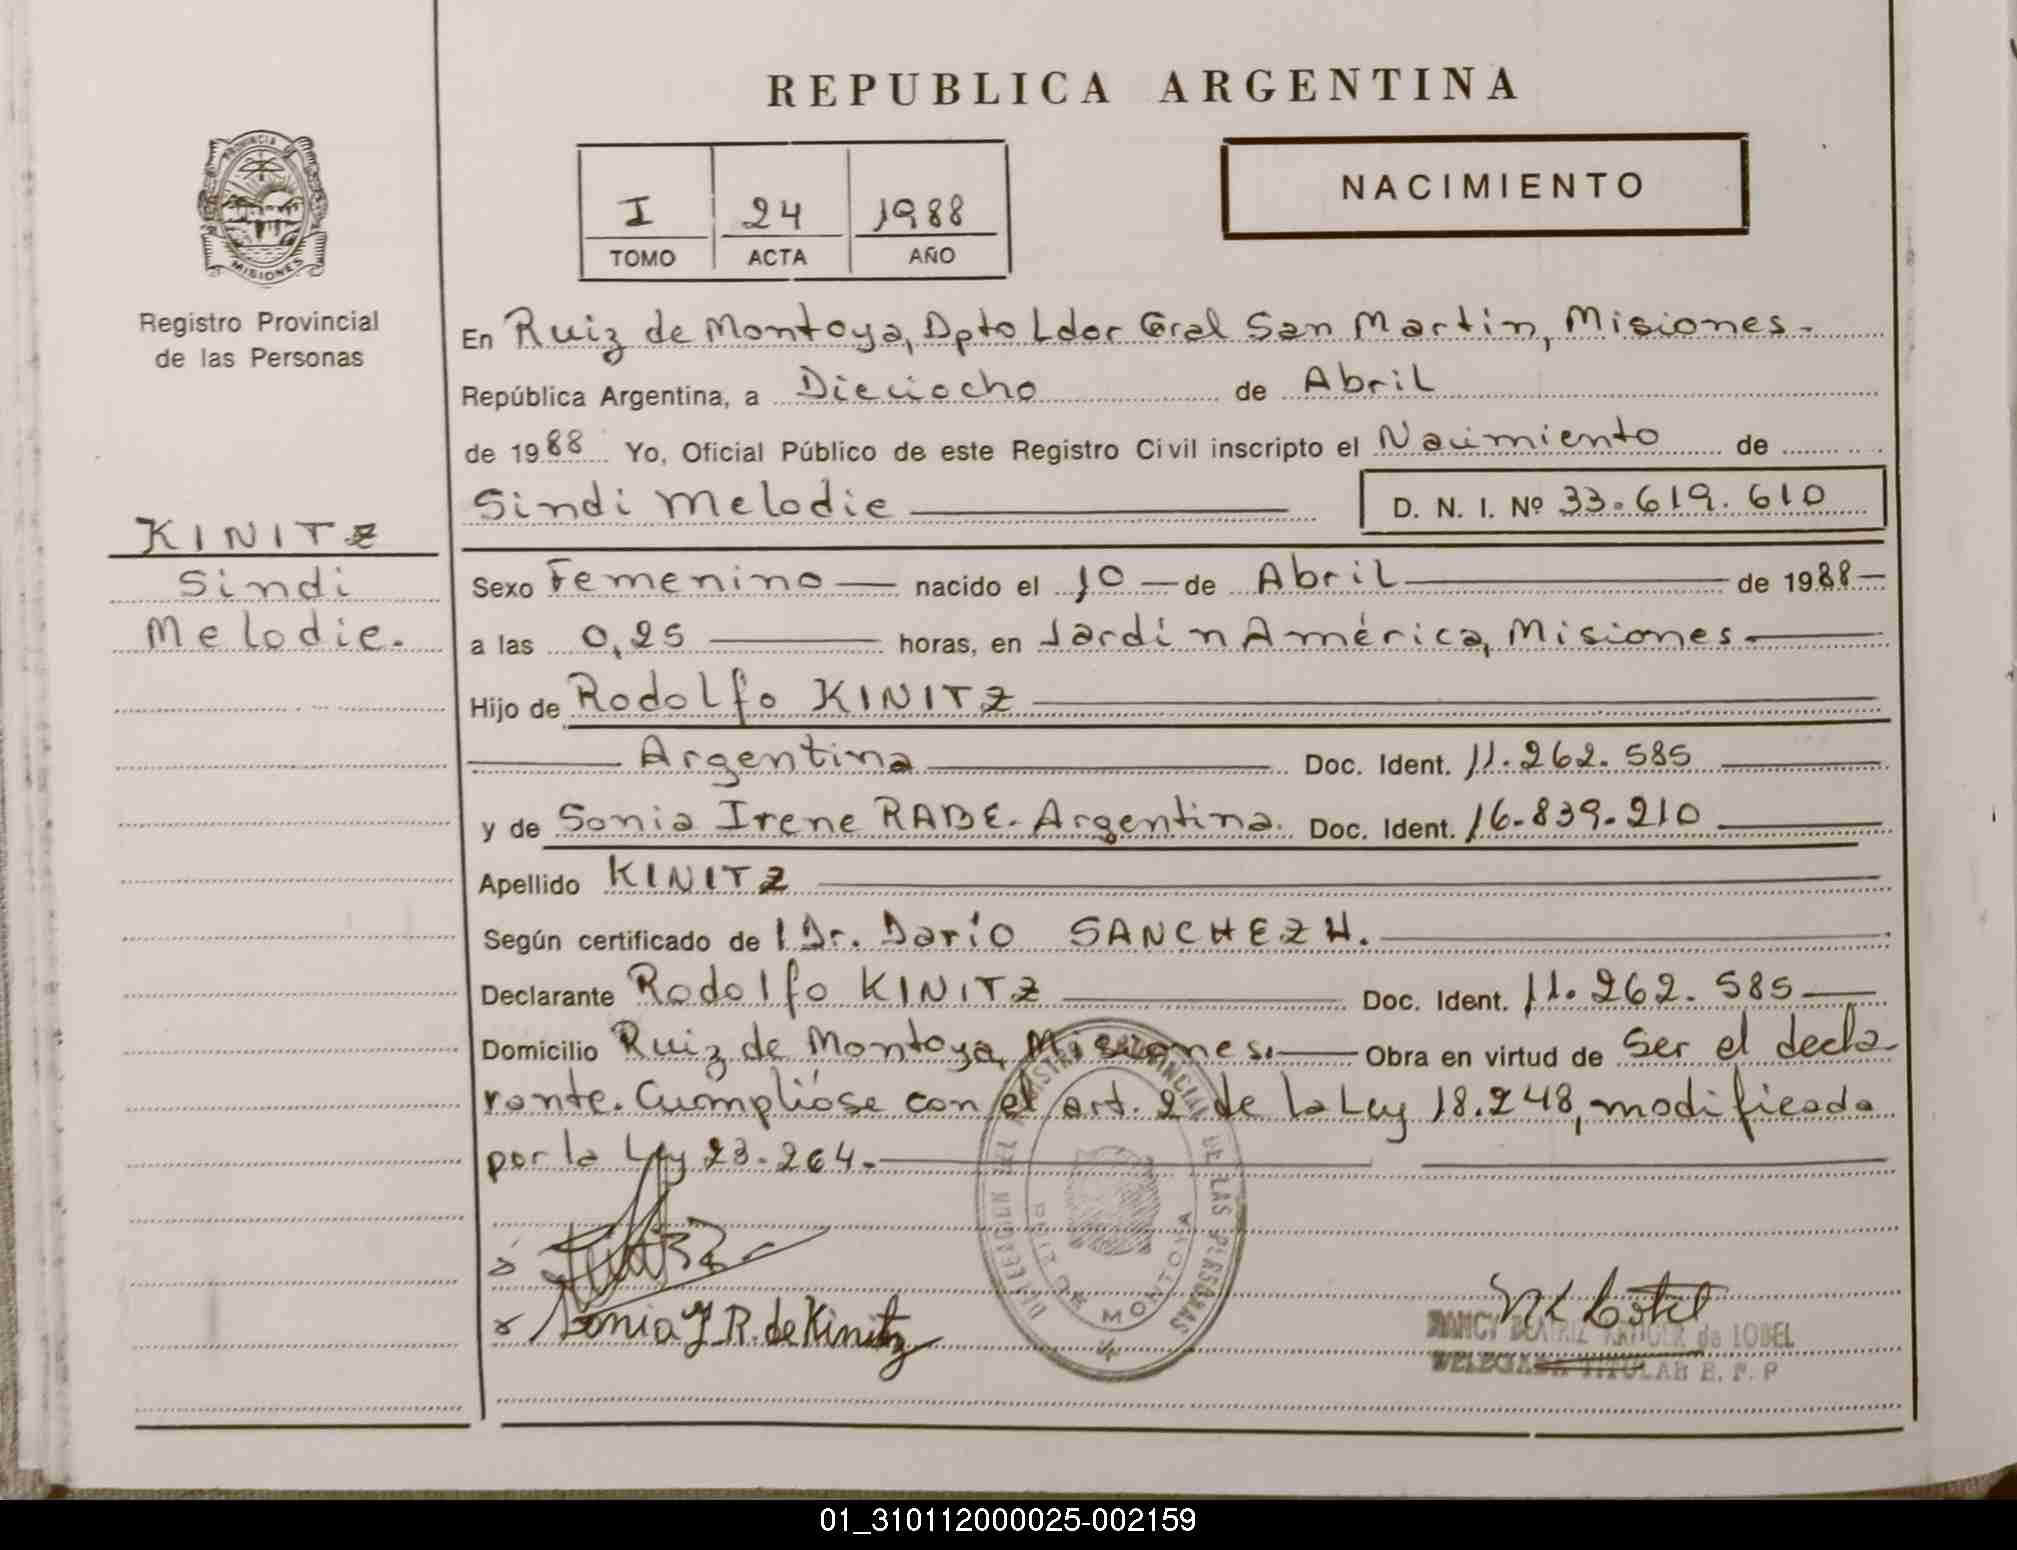 REPUBLICA ARGENTINA
PROVINCIA DE
MISIONES
Registro Provincial
de las Personas
I 24 1988
TOMO ACTA AÑO
NACIMIENTO
En Ruiz de Montoya, Dpto Ldor Gral San Martin, Misiones-
República Argentina, a Dieciocho de Abril
de 1988 Yo, Oficial Público de este Registro Civil inscripto el Nacimiento de
Sindi Melodie D. N. I. Nº 33.619.610
KINITZ
Sindi
Melodie.
Sexo Femenino nacido el 10 de Abril de 1988
a las 0,25 horas, en Jardín América, Misiones
Hijo de Rodolfo KINITZ
Argentina Doc. Ident. 11.262.585
y de Sonia Irene RABE- Argentina. Doc. Ident. 16.839.210
Apellido KINITZ
Según certificado de l Dr. Darío SANCHEZ H.
Declarante Rodolfo KINITZ Doc. Ident. 11.262.585
Domicilio Ruiz de Montoya, Misiones. Obra en virtud de Ser el decla-
rante. Cumplióse con el art. 2 de la Ley 18.248, modificada
por la Ley 23.264.
DIRECCION DEL REGISTRO PROVINCIAL DE LAS PERSONAS
RUIZ DE MONTOYA
Sonia I R. de Kinitz
NANCY BEATRIZ KRUGER de LOBEL
DELEGADA TITULAR R. P. P
01_310112000025-002159